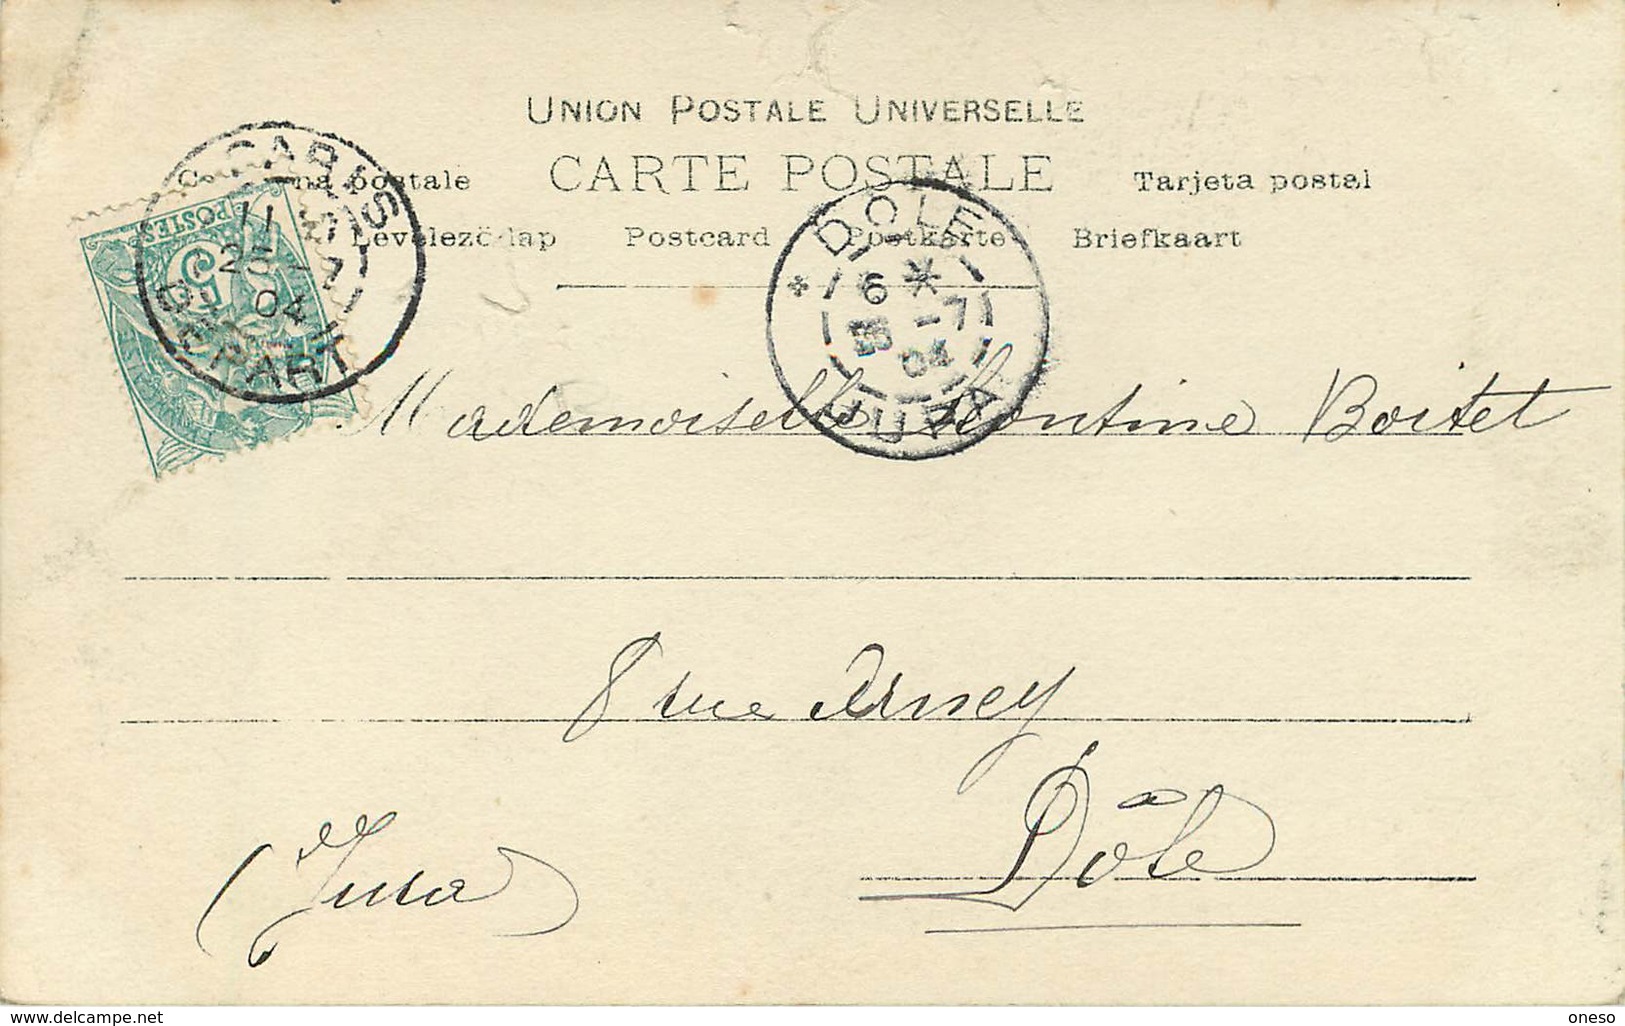 UNION POSTALE UNIVERSELLE
CARTE POSTALE
postale
Tarjeta postal
Levelező-lap Postcard Postkarte Briefkaart
POSTES
5
PARIS
11
25 7
04
DEPART
DOLE
6
-7
04
JURA
Mademoiselle Léontine Boitet
8 rue Arney
Dôle
(Jura)
www.delcampe.net
oneso